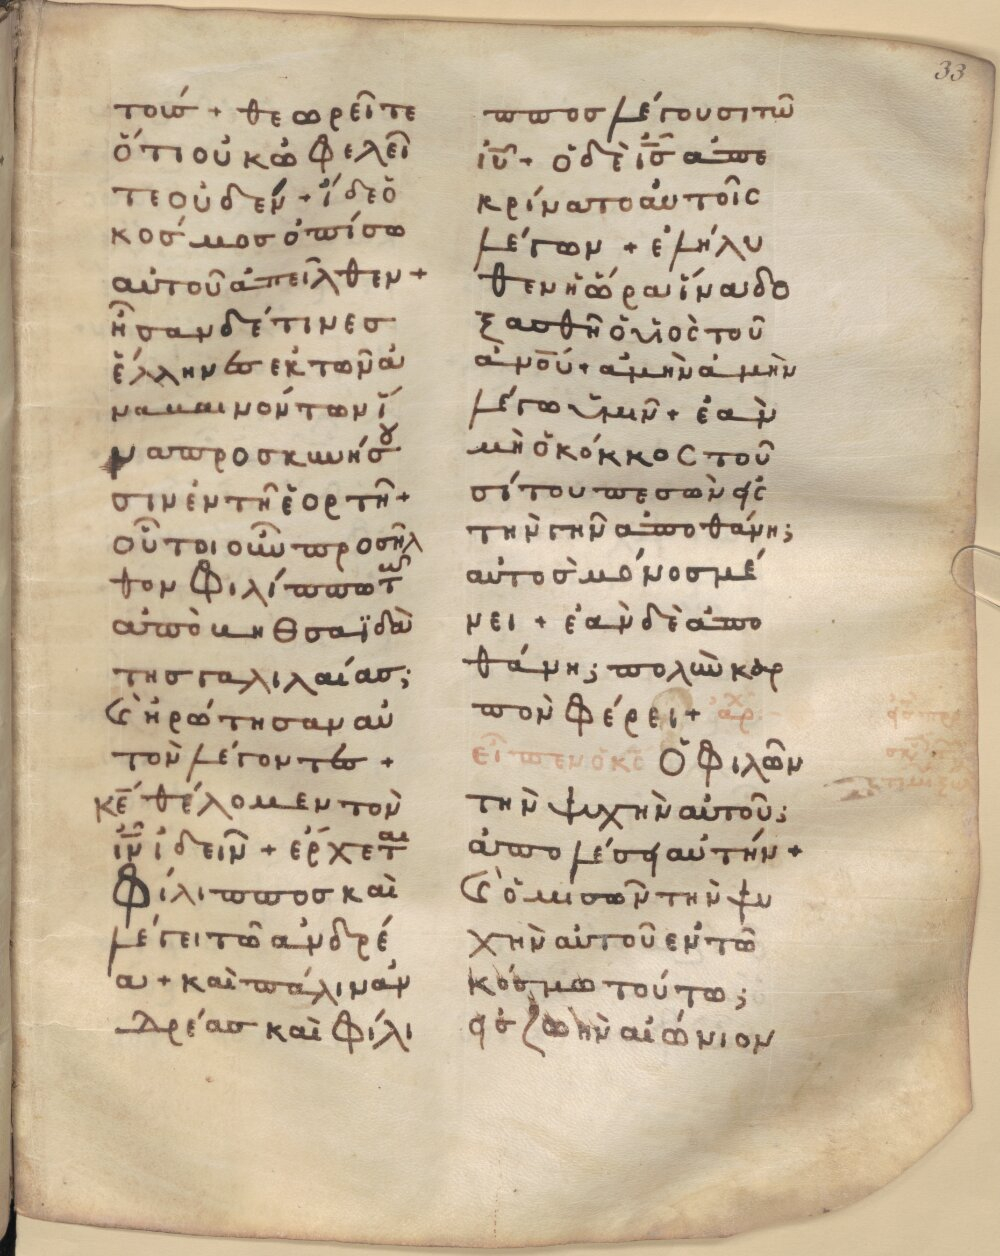 33
τοῖσ + θεωρεῖτε
ὅτι οὐκ ὠφελεῖ
τε οὐδέν + ἴδε ὁ
κόσμοσ ὀπίσω
αὐτοῦ ἀπεῖλθεν +
ἦσαν δέ τινεσ
ἕλληνεσ ἐκ τῶν ἀ
ναβαινόντων ἵ
να προσκυνήσου
σιν ἐν τῆ ἑορτῆ +
οὗτοι οὖν προσῆλ
θον Φιλίππω τῶ
ἀπὸ βηθσαϊδὰ
τησ γαλιλαίασ;
ϗ ἠρώτησαν αὐ
τὸν λέγοντεσ +
κ̅ε̅ θέλομεν τὸν
ι̅ν̅ ἰδεῖν + ἔρχεται
Φίλιπποσ καὶ
λέγει τῶ ἀνδρέ
α + καὶ πάλιν ἀν
δρέασ καὶ Φίλι
πποσ λέγουσι τῶ
ι̅υ̅ + ὁ δὲ ι̅σ̅ ἀπε
κρίνατο αὐτοῖσ
λέγων + ἐλήλυ
θεν ἡ ὥρα ἵνα δο
ξασθῆ ὁ υἱὸσ τοῦ
α̅ν̅ο̅υ̅ + ἀμὴν ἀμὴν
λέγω ὑμῖν + ἐὰν
μὴ ὁ κόκκοσ τοῦ
σίτου πεσὼν εἰσ
τὴν γῆν ἀποθάνη;
αὐτὸσ μόνοσ μέ
νει + ἐὰν δὲ ἀπο
θάνη; πολὺν καρ
πὸν Φέρει + ἀρχ
εἶπεν ὁ κ̅σ̅ Ὁ Φιλῶν
τὴν ψυχὴν αὐτοῦ;
ἀπολέσει αὐτήν +
ϗ ὁ μισῶν τὴν ψυ
χὴν αὐτοῦ ἐν τῶ
κόσμω τούτω;
εἰσ ζωὴν αἰώνιον